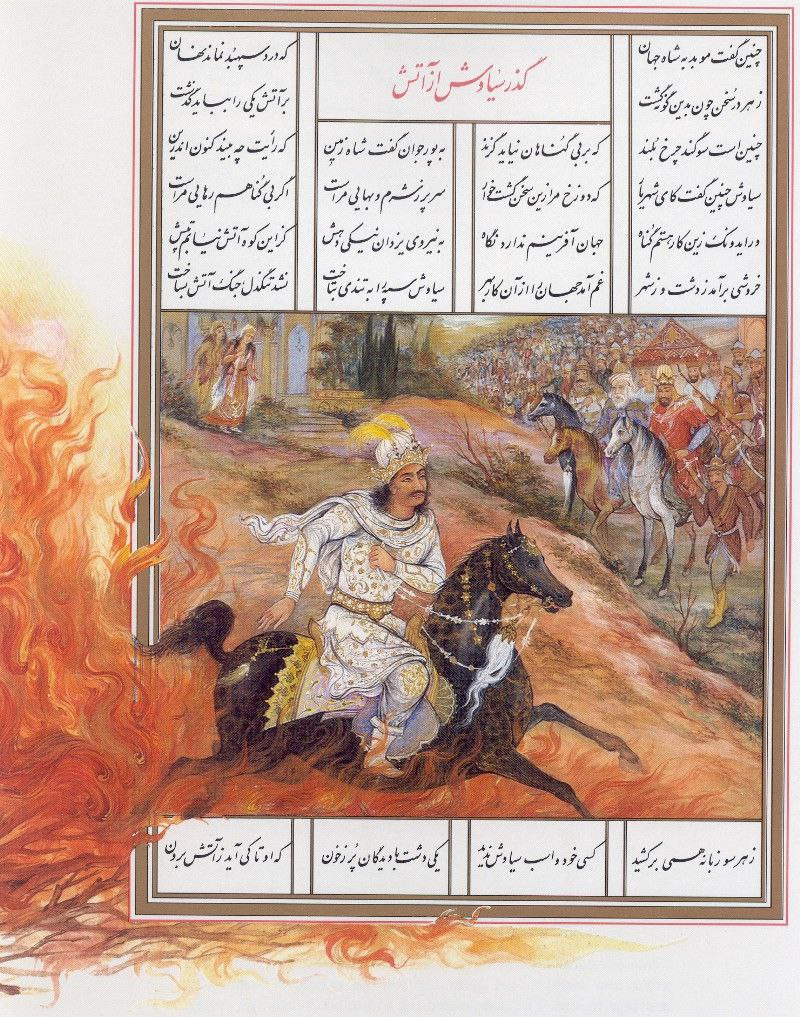 گذر سیاوش از آتش
چنین گفت موبد به شاه جهان که درد سپهبد نماند نهان
ز هر در سخن چون بدین گونه گشت بر آتش یکی را بباید گذشت
چنین است سوگند چرخ بلند که بر بی گناهان نیاید گزند به پور جوان گفت شاه زمین که رأیت چه بیند کنون اندرین
سیاوش چنین گفت کای شهریار که دوزخ مرا زین سخن گشت خوار سر پر ز شرم و بهایی مراست اگر بی گناهم رهایی مراست
ور ایدونک زین کار هستم گناه جهان آفرینم ندارد نگاه به نیروی یزدان نیکی دهش کزین کوه آتش نیابم تپش
خروشی برآمد ز دشت و ز شهر غم آمد جهان را از آن کار بهر سیاوش سیه را به تندی بتاخت نشد تنگدل جنگ آتش بساخت
ز هر سو زبانه همی برکشید کسی خود و اسب سیاوش ندید یکی دشت با دیدگان پر ز خون که او تا کی آید ز آتش برون